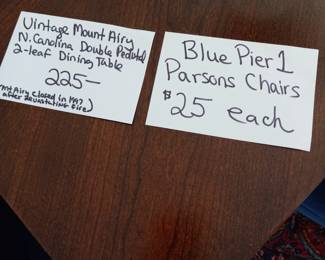 Vintage Mount Airy
N. Carolina Double Pedistal
2-leaf Dining Table
225—
(Mt Airy closed in 1997
after devastating fire)
Blue Pier 1
Parsons Chairs
$25 each